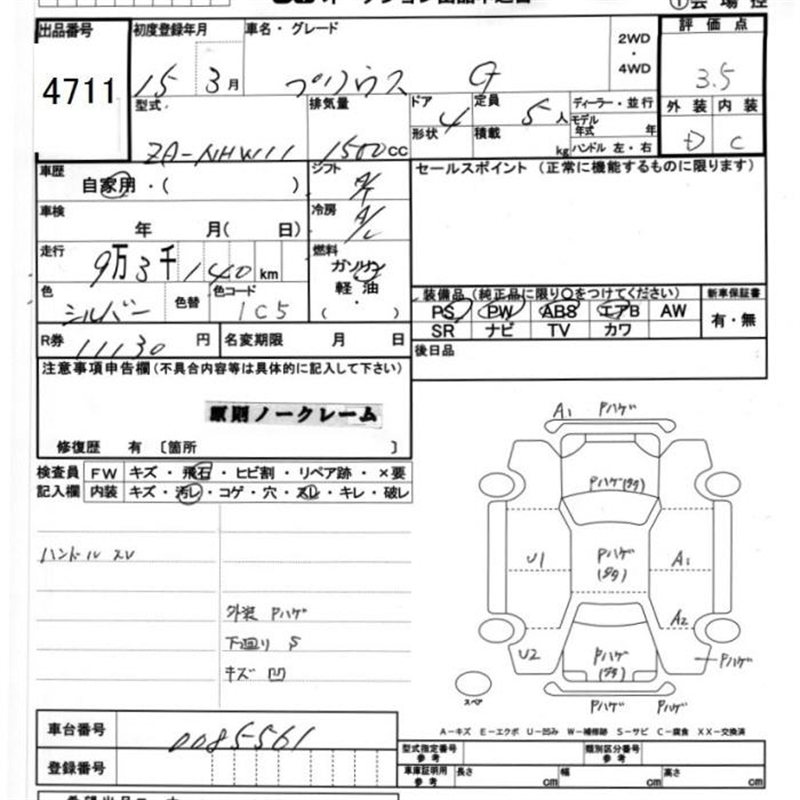 出品番号 初度登録年月 車名・グレード 2WD・4WD 評価点
4711 15 3月 プリウス G 3.5
型式 排気量 ドア形状 4 定員 5人 積載 kg ディーラー・並行 モデル年式 年 ハンドル 左・右 外装 D 内装 C
ZA-NHW11 1500CC
車歴 自家用・( ) シフト A/T セールスポイント (正常に機能するものに限ります)
車検 年 月( 日) 冷房 A/C
走行 9万3千140km 燃料 ガソリン 軽油・( )
色 シルバー 色替 色コード 1C5 装備品(純正品に限り○をつけてください) 新車保証書
PS PW ABS エアB AW 有・無
SR ナビ TV カワ
R券 11130円 名変期限 月 日 後日品
注意事項申告欄(不具合内容等は具体的に記入して下さい)
原則ノークレーム
修復歴 有 〔箇所 〕
検査員 FW キズ・飛石・ヒビ割・リペア跡・×要
記入欄 内装 キズ・汚レ・コゲ・穴・スレ・キレ・破レ
A1 Pハゲ
Pハゲ(タタ)
ハンドル スレ
U1 Pハゲ(タタ) A1
外装 Pハゲ
A2
下回り S
U2 Pハゲ(タタ) Pハゲ
キズ 凹
スペア
Pハゲ Pハゲ
A-キズ E-エクボ U-凹み W-補修跡 S-サビ C-腐食 XX-交換済
車台番号 0085561
型式指定番号参考 類別区分番号参考
登録番号 車庫証明用参考 長さ cm 幅 cm 高さ cm